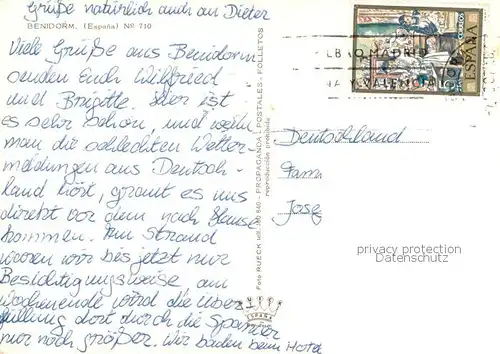 Grüße natürlich auch an Dieter
BENIDORM. (España) Nº 710
Viele Grüße aus Benidorm
senden Euch Wilfried
und Brigitte. Hier ist
es sehr schön, und wenn
man die schlechten Wetter-
meldungen aus Deutsch-
land hört, graut es uns
direkt vor dem nach Hause
kommen. Am Strand
waren wir bis jetzt nur
Besichtigungsweise am
Wochenende wird die Über-
füllung dort durch die Spanier
nur noch größer. Wir baden beim Hotel
Foto RUECK - PROPAGANDA - POSTALES - FOLLETOS
reproducción prohibida
ESPAÑA
LBAO MADRID
VALENCIA
ESPAÑA
CORREOS
Deutschland
Fam
Josef
privacy protection
Datenschutz